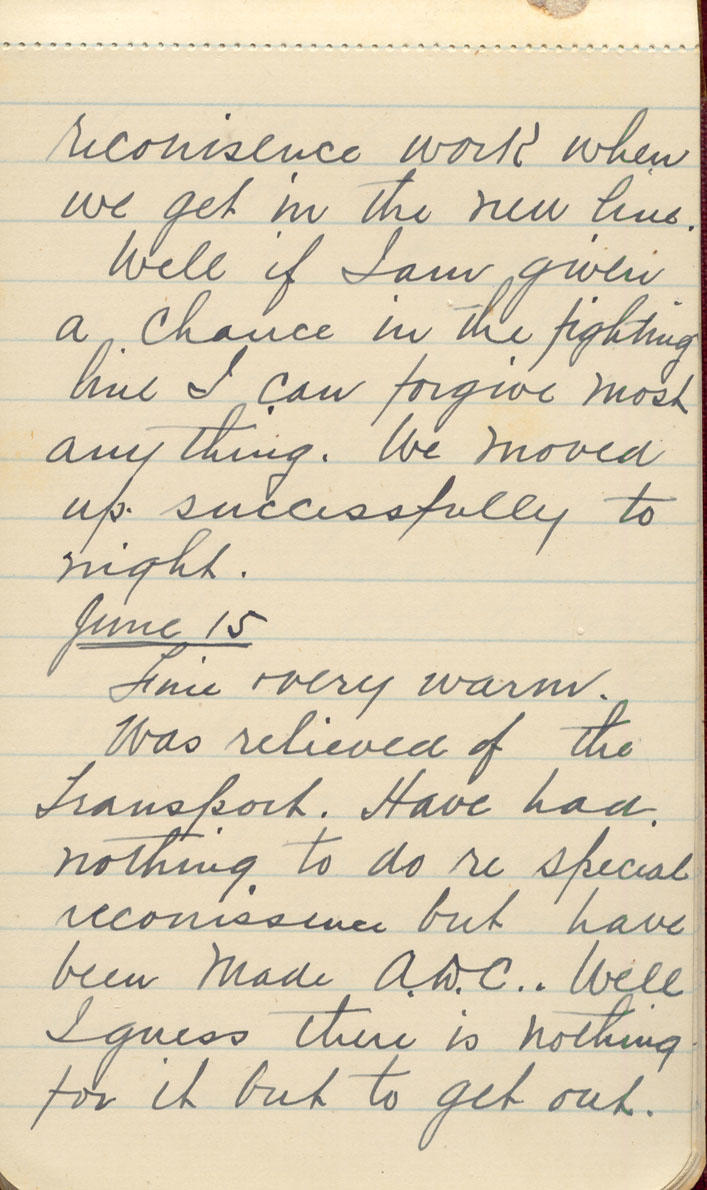 reconisence work when
we get in the new line.
Well if I am given
a chance in the fighting
line I can forgive most
any thing. We moved
up successfully to
night.
June 15
Fine & very warm.
Was relieved of the
Transport. Have had
nothing to do re special
reconissence but have
been made A.D.C.. Well
I guess there is nothing
for it but to get out.